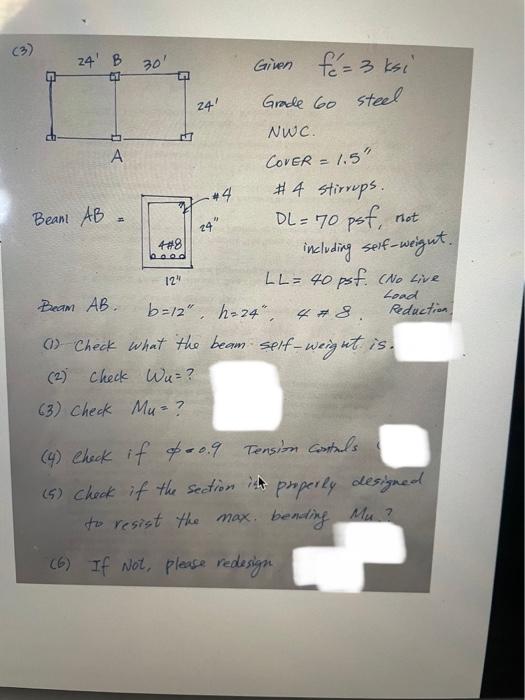 (3)
24' B 30'
24'
A
Given fc' = 3 ksi
Grade 60 steel
NWC.
COVER = 1.5"
#4 stirrups.
DL = 70 psf, not
including self-weight.
LL = 40 psf. (No Live
Load
Reduction)
Beam AB =
#4
24"
4#8
12"
Beam AB. b=12", h=24", 4 #8.
(1) Check what the beam self-weight is.
(2) Check Wu=?
(3) Check Mu=?
(4) Check if φ=0.9 Tension Controls
(5) Check if the section is properly designed
to resist the max. bending Mu?
(6) If Not, please redesign